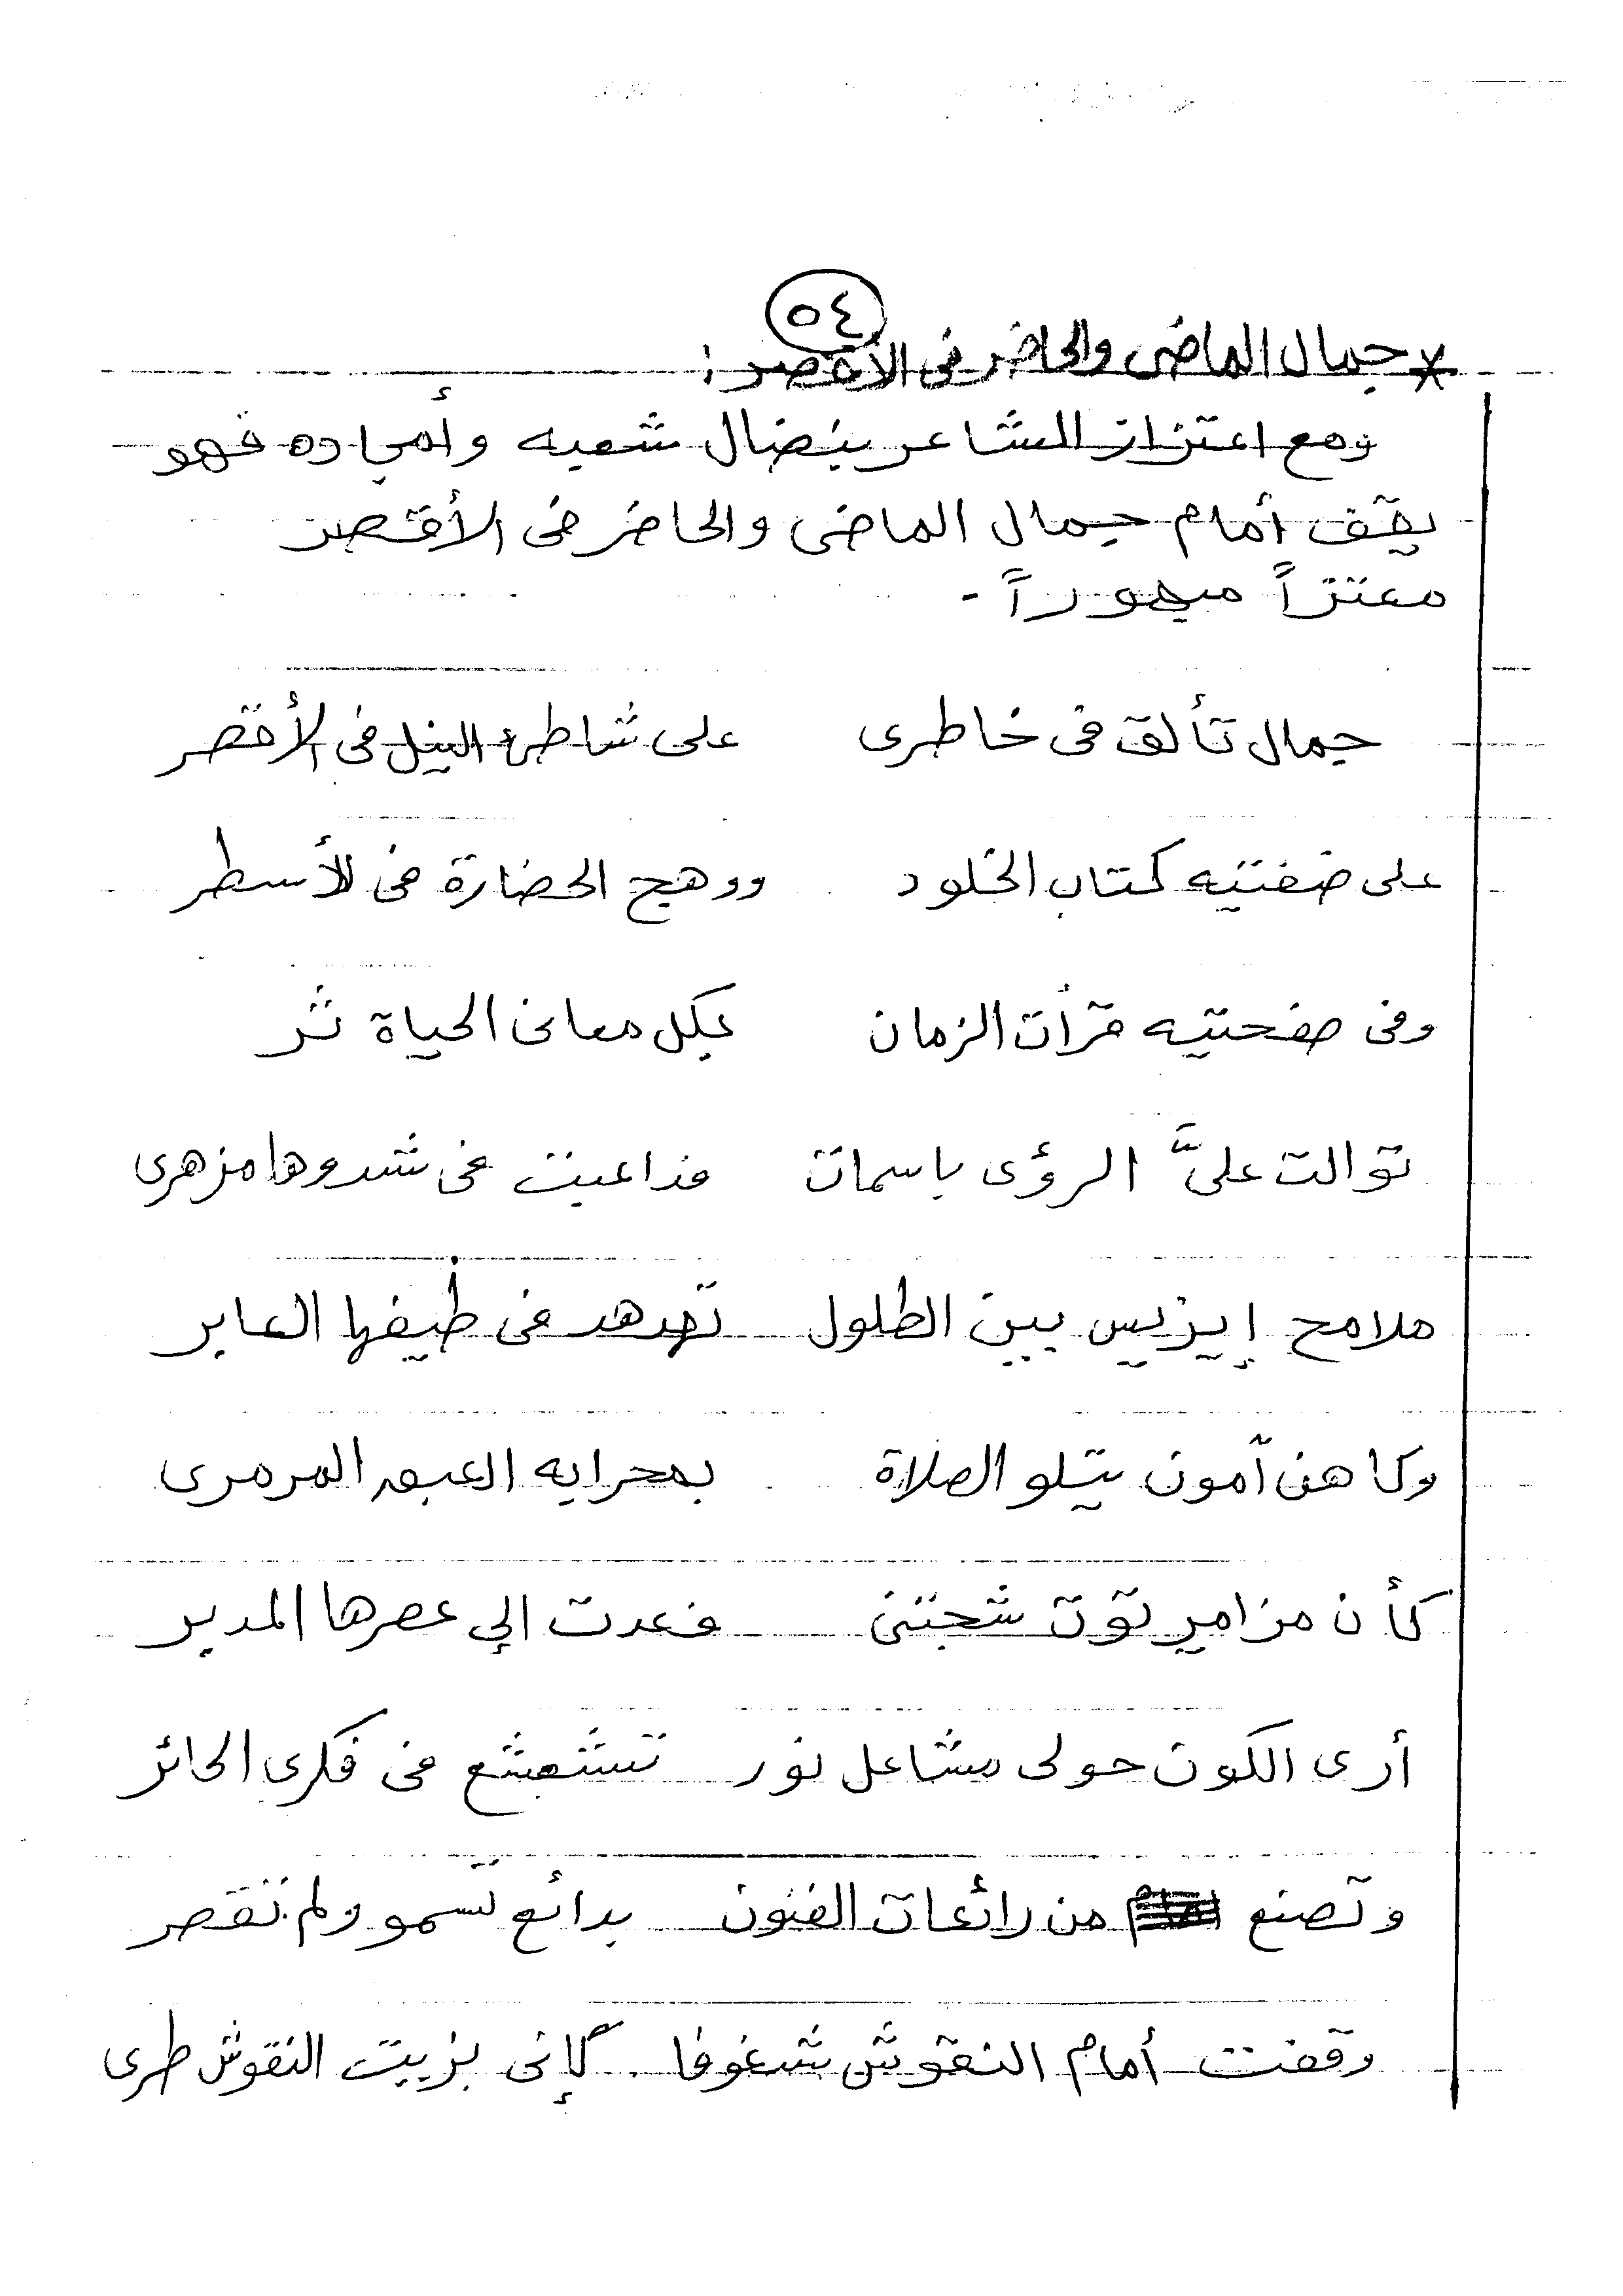 ٥٤
* جمال الماضى والحاضر فى الأقصر :
ومع اعتزاز الشاعر بنضال شعبه وأمجاده فهو
يقف أمام جمال الماضى والحاضر فى الأقصر
معتزاً مبهوراً .
جمال تألق فى خاطرى على شاطئ النيل فى الأقصر
على ضفتيه كتاب الخلود ووهج الحضارة فى الأسطر
وفى صفحتيه قرأت الزمان بكل معانى الحياة ثر
توالت علىَّ الرؤى باسمات فداعبت فى شدوها مزهرى
ملامح إيزيس بين الطلول تهدهد فى طيفها العابر
وكاهن آمون يتلو الصلاة بمحرابه العبق المرمرى
كأن مزامير توت شجتنى فعدت إلى عصرها المدبر
أرى الكون حولى مشاعل نور تشعشع فى فكرى الحائر
وتصنع من رائعات الفنون بدائع تسمو ولم تقصر
وقفت أمام النقوش شغوفا كإنى بزيت النقوش طرى